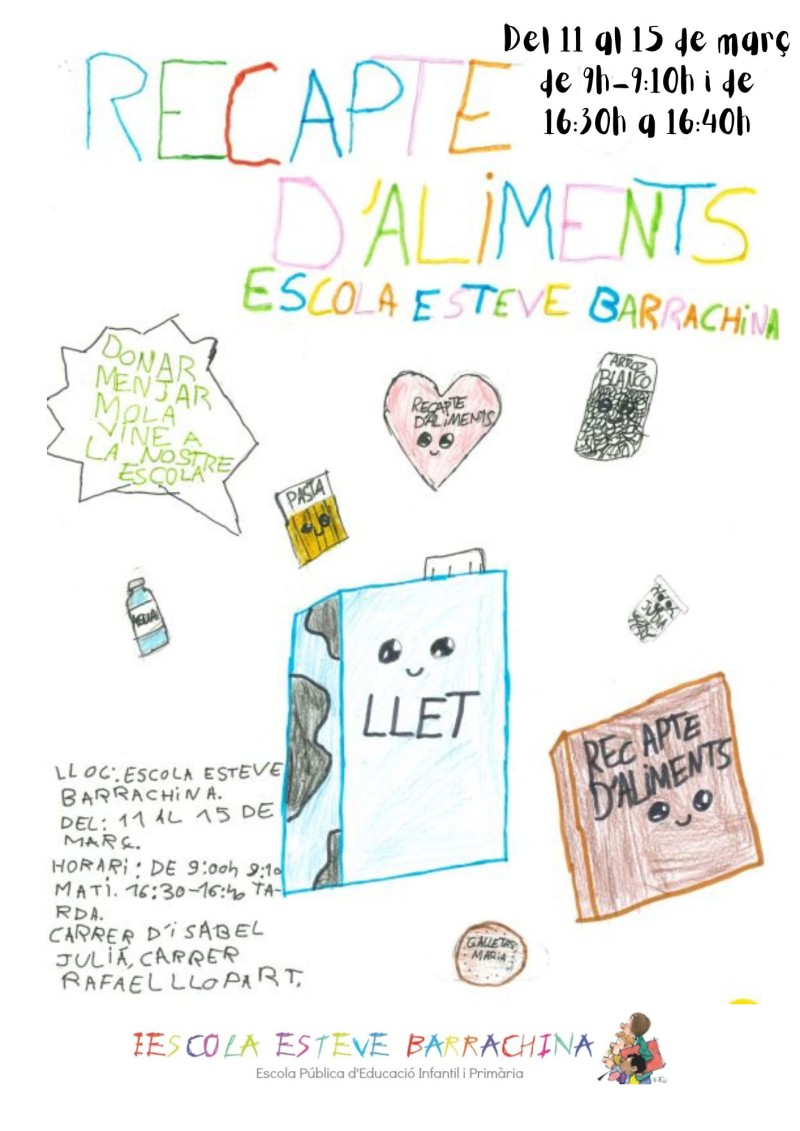 Del 11 al 15 de març
de 9h-9:10h i de
16:30h a 16:40h
RECAPTE
D'ALiMENTS
ESCOLA ESTEVE BARRACHiNA
DONAR
MENJAR
MOLA
VINE A
LA NOSTRE
ESCOLA
RECAPTE
D'ALiMENTS
ARROZ
BLANCO
PASTA
AGUA
LLET
REC APTE
D'ALiMENTS
LLOC: ESCOLA ESTEVE
BARRACHiNA.
DEL: 11 AL 15 DE
MARÇ.
HORARi: DE 9:00h 9:10
MATI. 16:30-16:40 TA-
RDA.
CARRER D'iSABEL
JULIÀ, CARRER
RAFAEL LLOPART.
GALLETAS
MARIA
EESCOLA ESTEVE BARRACHINA
Escola Pública d'Educació Infantil i Primària